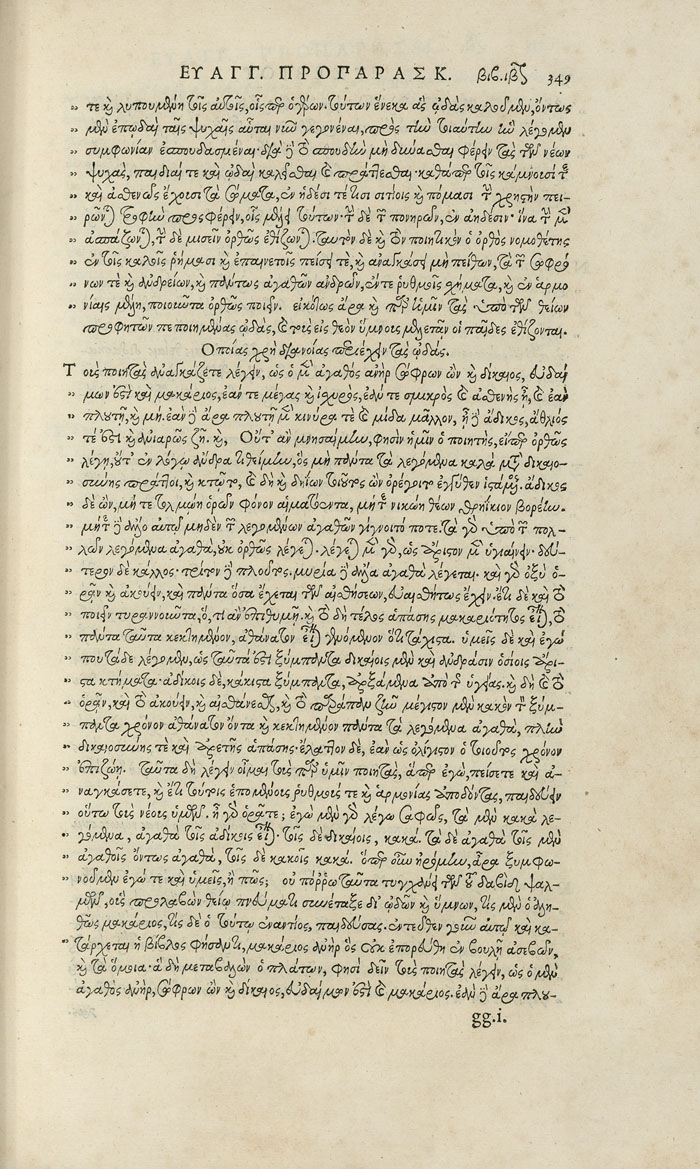 ΕΥΑΓΓ. ΠΡΟΠΑΡΑΣΚ. βιβ. ιβ 349
„ τε καὶ λυπουμένη τοῖς αὐτοῖς, οἷς περ ὁ γέρων. τούτων ἕνεκα ἃς ᾠδὰς καλοῦμεν, ὄντως
„ μὲν ἐπῳδαὶ ταῖς ψυχαῖς αὗται νῦν γεγονέναι, πρὸς τὴν τοιαύτην ἣν λέγομεν
„ συμφωνίαν ἐσπουδασμέναι· διὰ δὲ τὸ σπουδὴν μὴ δύνασθαι φέρειν τὰς τῶν νέων
„ ψυχὰς, παιδιαί τε καὶ ᾠδαὶ καλεῖσθαι καὶ πράττεσθαι· καθάπερ τοῖς κάμνουσί τε
„ καὶ ἀσθενῶς ἔχουσι τὰ σώματα, ἐν ἡδέσι τέ τισι σιτίοις καὶ πόμασι τὴν χρηστὴν πει-
„ ρῶνται τροφὴν προσφέρειν, οἷς μέλει τούτων· τὴν δὲ τῶν πονηρῶν, ἐν ἀηδέσιν· ἵνα τὴν μὲν
„ ἀσπάζωνται, τὴν δὲ μισεῖν ὀρθῶς ἐθίζωνται. ταυτὸν δὲ καὶ τὸν ποιητικὸν ὁ ὀρθὸς νομοθέτης
„ ἐν τοῖς καλοῖς ῥήμασι καὶ ἐπαινετοῖς πείσει τε, καὶ ἀναγκάσει μὴ πείθων, τὰ τῶν σωφρό
„ νων τε καὶ ἀνδρείων, καὶ πάντως ἀγαθῶν ἀνδρῶν, ἔν τε ῥυθμοῖς σχήματα, καὶ ἐν ἁρμο
„ νίαις μέλη, ποιοῦντα ὀρθῶς ποιεῖν. εἰκότως ἄρα καὶ παρ' ἡμῖν τὰς ὑπὸ τῶν θείων
„ προφητῶν πεποιημένας ᾠδὰς, καὶ τοὺς εἰς θεὸν ὕμνους μελετᾶν οἱ παῖδες ἐθίζονται.
Ὁποίας χρὴ διανοίας περιέχειν τὰς ᾠδάς.
Τοὺς ποιητὰς ἀναγκάζετε λέγειν, ὡς ὁ μὲν ἀγαθὸς ἀνὴρ σώφρων ὢν καὶ δίκαιος, εὐδαί
„ μων ἐστὶ καὶ μακάριος, ἐάν τε μέγας καὶ ἰσχυρὸς, ἐάν τε σμικρὸς καὶ ἀσθενὴς ᾖ, καὶ ἐὰν
„ πλουτῇ, καὶ μή. ἐὰν δὲ ἄρα πλουτῇ μὲν κινύρα τὲ καὶ μίδα μᾶλλον, ᾖ δὲ ἄδικος, ἄθλιός
„ τέ ἐστι καὶ ἀνιαρῶς ζῇ. καὶ, Οὔτ' ἂν μνησαίμην, φησὶν ἡμῖν ὁ ποιητὴς, εἴπερ ὀρθῶς
„ λέγει, οὔτ' ἐν λόγῳ ἄνδρα τιθείμην, ὃς μὴ πάντα τὰ λεγόμενα καλὰ μετὰ δικαιο-
„ σύνης πράττοι, καὶ κτῷτο, καὶ δὴ καὶ δηίων τοιοῦτος ὢν ὀρέγοιτο ἐγγύθεν ἱστάμενος. ἄδικος
„ δὲ ὢν, μή τε τολμῴη ὁρῶν φόνον αἱματόεντα, μήτε νικῴη θέων θρηίκιον βορέην.
„ μήτε δὲ ἄλλο αὐτῷ μηδὲν τῶν λεγομένων ἀγαθῶν γίγνοιτό ποτε. τὰ γὰρ ὑπὸ τῶν πολ-
„ λῶν λεγόμενα ἀγαθὰ, οὐκ ὀρθῶς λέγεται. λέγεται μὲν γὰρ, ὡς ἄριστον μὲν ὑγιαίνειν· δεύ-
„ τερον δὲ κάλλος· τρίτον δὲ πλοῦτος. μυρία δὲ ἄλλα ἀγαθὰ λέγεται. καὶ γὰρ ὀξὺ ὁ-
„ ρᾶν καὶ ἀκούειν, καὶ πάντα ὅσα ἔχεται τῶν αἰσθήσεων, εὐαισθήτως ἔχειν. ἔτι δὲ καὶ τὸ
„ ποιεῖν τυραννοῦντα, ὅ, τι ἂν ἐπιθυμῇ. καὶ τὸ δὴ τέλος ἁπάσης μακαριότητος εἶναι, τὸ
„ πάντα ταῦτα κεκτημένον, ἀθάνατον εἶναι γενόμενον ὅτι τάχιστα. ὑμεῖς δὲ καὶ ἐγώ
„ που τάδε λέγομεν, ὡς ταῦτά ἐστι ξύμπαντα δικαίοις μὲν καὶ ἀνδράσιν ὁσίοις ἄρι-
„ στα κτήματα· ἀδίκοις δὲ, κάκιστα ξύμπαντα, ἀρξάμενα ἀπὸ τῆς ὑγείας. καὶ δὴ καὶ τὸ
„ ὁρᾶν, καὶ τὸ ἀκούειν, καὶ αἰσθάνεσθαι, καὶ τὸ παράπαν ζῆν μέγιστον μὲν κακὸν τὸν ξύμ-
„ παντα χρόνον ἀθάνατον ὄντα καὶ κεκτημένον πάντα τὰ λεγόμενα ἀγαθὰ, πλὴν
„ δικαιοσύνης τὲ καὶ ἀρετῆς ἁπάσης· ἔλαττον δὲ, ἐὰν ὡς ὀλίγιστον ὁ τοιοῦτος χρόνον
„ ἐπιζώῃ. Ταῦτα δὴ λέγειν οἶμαι τοὺς παρ' ὑμῖν ποιητὰς, ἅπερ ἐγὼ, πείσετε καὶ ἀ-
„ ναγκάσετε, καὶ ἔτι τούτοις ἑπομένους ῥυθμούς τὲ καὶ ἁρμονίας ἀποδόντας, παιδεύειν
„ οὕτω τοὺς νέους ὑμῶν. ἦ γὰρ ὁρᾶτε; ἐγὼ μὲν γὰρ λέγω σαφῶς, τὰ μὲν κακὰ λε-
„ γόμενα, ἀγαθὰ τοῖς ἀδίκοις εἶναι· τοῖς δὲ δικαίοις, κακά. τὰ δὲ ἀγαθὰ τοῖς μὲν
„ ἀγαθοῖς ὄντως ἀγαθὰ, τοῖς δὲ κακοῖς κακά. ὅπερ οὖν ἠρόμην, ἆρα ξυμφω-
„ νοῦμεν ἐγώ τε καὶ ὑμεῖς, ἢ πῶς; οὐ πόρρω ταῦτα τυγχάνει τῶν τοῦ δαβὶδ ψαλ-
„ μῶν, οὓς προλαβὼν θείῳ πνεύματι συνέταξε δι' ᾠδῶν καὶ ὕμνων, τίς μὲν ὁ ἀλη-
„ θῶς μακάριος, τίς δὲ ὁ τούτῳ ἐναντίος, παιδεύσας. ἐντεῦθεν γοῦν αὐτῷ καὶ κα-
„ τάρχεται ἡ βίβλος φήσαντι, μακάριος ἀνὴρ ὃς οὐκ ἐπορεύθη ἐν βουλῇ ἀσεβῶν,
„ καὶ τὰ ὅμοια· ἃ δὴ μεταβαλὼν ὁ πλάτων, φησὶ δεῖν τοὺς ποιητὰς λέγειν, ὡς ὁ μὲν
„ ἀγαθὸς ἀνὴρ, σώφρων ὢν καὶ δίκαιος, εὐδαίμων ἐστὶ καὶ μακάριος. ἐὰν δὲ ἄρα πλου-
gg.i.